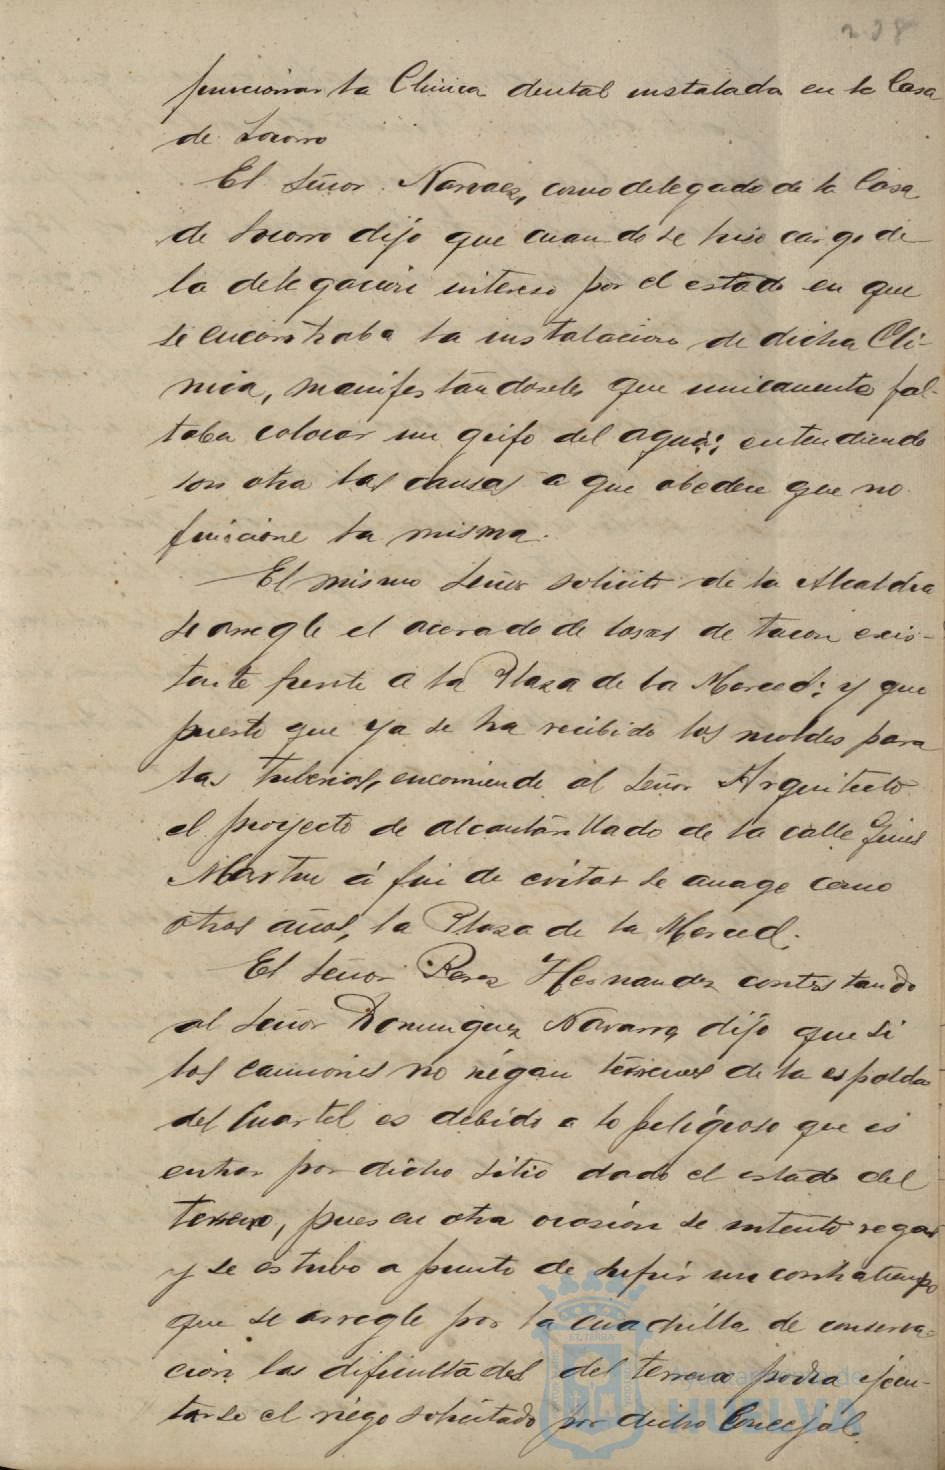 238
funcionar la Clinica dental instalada en la Casa
de Socorro
El Señor Narvaez, como delegado de la Casa
de Socorro dijo que cuando se hiso cargo de
la delegación intereso por el estado en que
se encontraba la instalacion de dicha Cli-
nica, manifestandosele que unicamente fal-
taba colocar un grifo del agua; entendiendo
son otra las causas a que obedece que no
funcione la misma.
El mismo Señor solicito de la Alcaldia
se arregle el acerado de losas de tacon exis-
tente frente a la Plaza de la Merced; y que
puesto que ya se ha recibido los moldes para
las tuberias, encomiende al Señor Arquitecto
el proyecto de alcantarillado de la calle Gines
Martin á fin de evitar se anage como
otros años, la Plaza de la Merced.
El Señor Perez Hernandez contestando
al Señor Dominguez Navarro, dijo que si
los camiones no riegan terrenos de la espalda
del Cuartel es debido a lo peligroso que es
entrar por dicho sitio dado el estado del
terreno, pues en otra ocasión se intentó regar
y se estubo a punto de sufrir un contratiempo
que se arregle por la cuadrilla de conserva-
cion las dificultades del terreno podra ejecu-
tarse el riego solicitado por dicho Concejal.
Ayuntamiento de
HUELVA